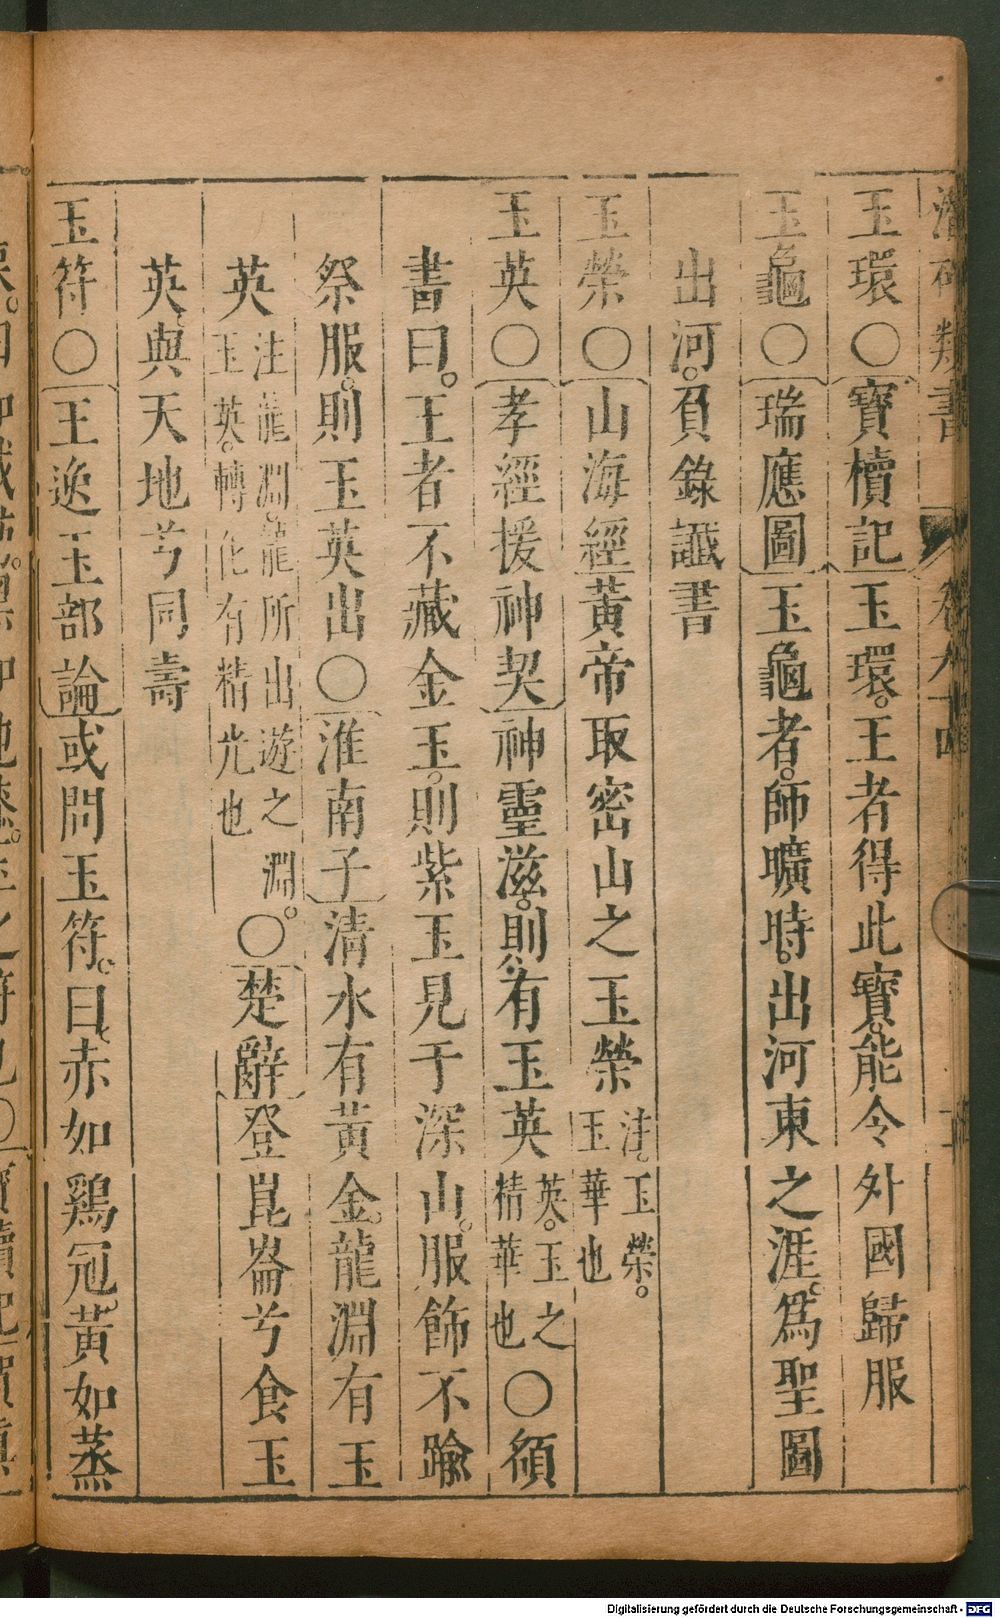 潛確類書 卷九十四
玉環○寶櫝記玉環。王者得此寶。能令外國歸服
玉龜○瑞應圖玉龜者。師曠時。出河東之涯。爲聖圖
出河。負錄讖書
玉榮○山海經黃帝取密山之玉榮 注。玉榮。玉華也
玉英○孝經援神契神靈滋。則有玉英 英。玉之精華也 ○須
書曰。王者不藏金玉。則紫玉見于深山。服飾不踰
祭服。則玉英出○淮南子清水有黃金。龍淵有玉
英 注龍淵。龍所出遊之淵。玉英。轉化有精光也 ○楚辭登崑崙兮食玉
英。與天地兮同壽
玉符○王逸玉部論或問玉符。曰、赤如鷄冠。黃如蒸
Digitalisierung gefördert durch die Deutsche Forschungsgemeinschaft - DFG